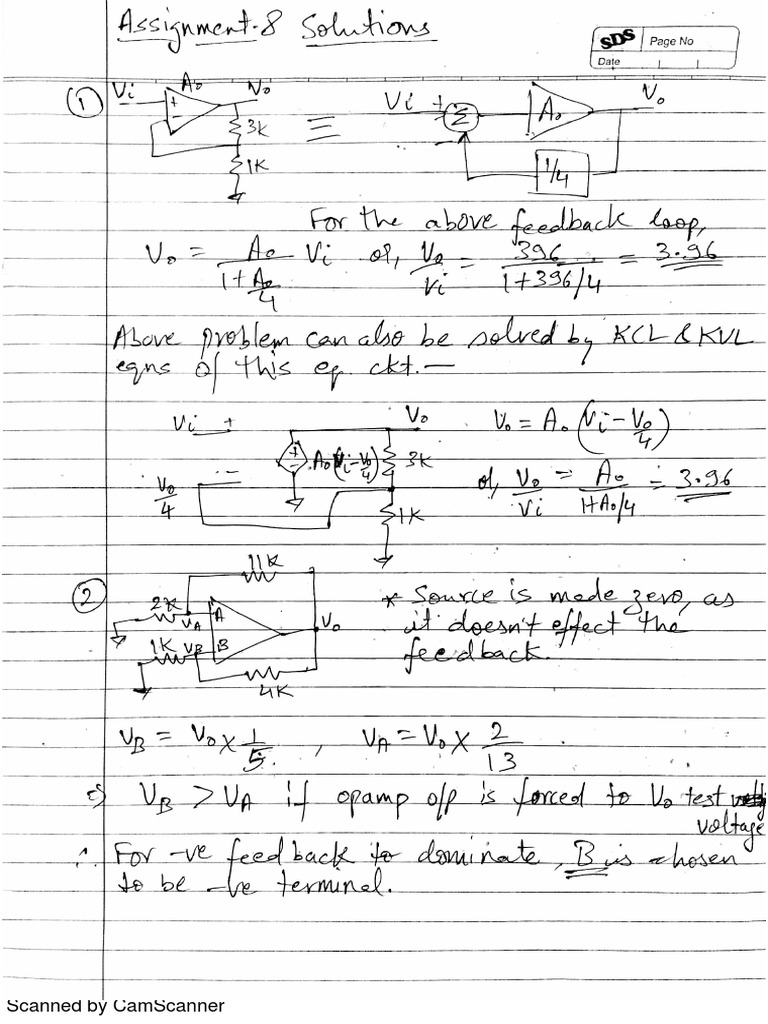 Assignment-8 Solutions
SDS Page No
Date
① Vi + - A₀ V₀ 3K 1K ≡ Vi + Σ - A₀ V₀ 1/4
For the above feedback loop,
V₀ = A₀/(1+A₀/4) Vi or, V₀/Vi = 396/(1+396/4) = 3.96
Above problem can also be solved by KCL & KVL
eqns of this eq. ckt.—
Vi + V₀ V₀ = A₀(Vi-V₀/4)
- V₀/4 + - A₀(Vi-V₀/4) 3K 1K or, V₀/Vi = A₀/(1+A₀/4) = 3.96
② 11K 2K VA A 1K VB B V₀ 4K
* Source is made zero, as
it doesn't effect the
feedback.
VB = V₀ x 1/5 , VA = V₀ x 2/13
⇒ VB > VA if opamp o/p is forced to V₀ test
voltage
∴ For -ve feedback to dominate, B is chosen
to be -ve terminal.
Scanned by CamScanner